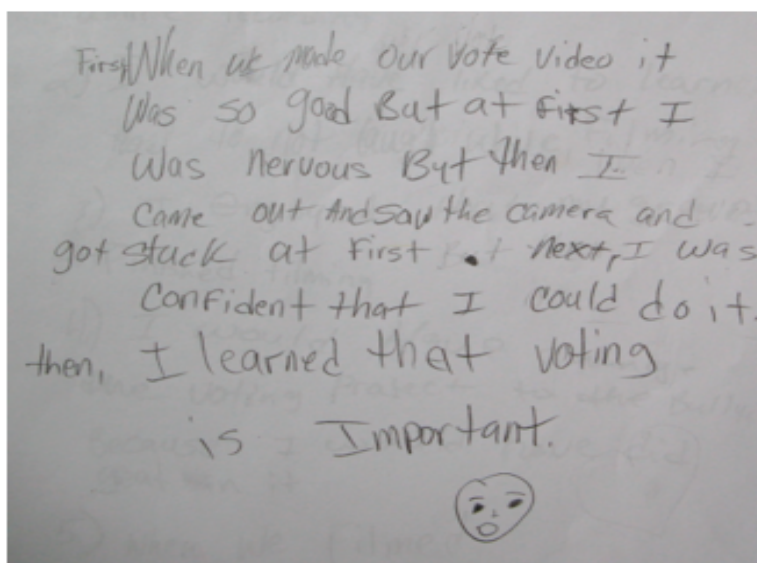 First, When we made our Vote video it
Was so good But at first I
Was nervous But then I
Came out And saw the camera and
got stuck at first. next, I was
Confident that I could do it.
then, I learned that voting
is Important.